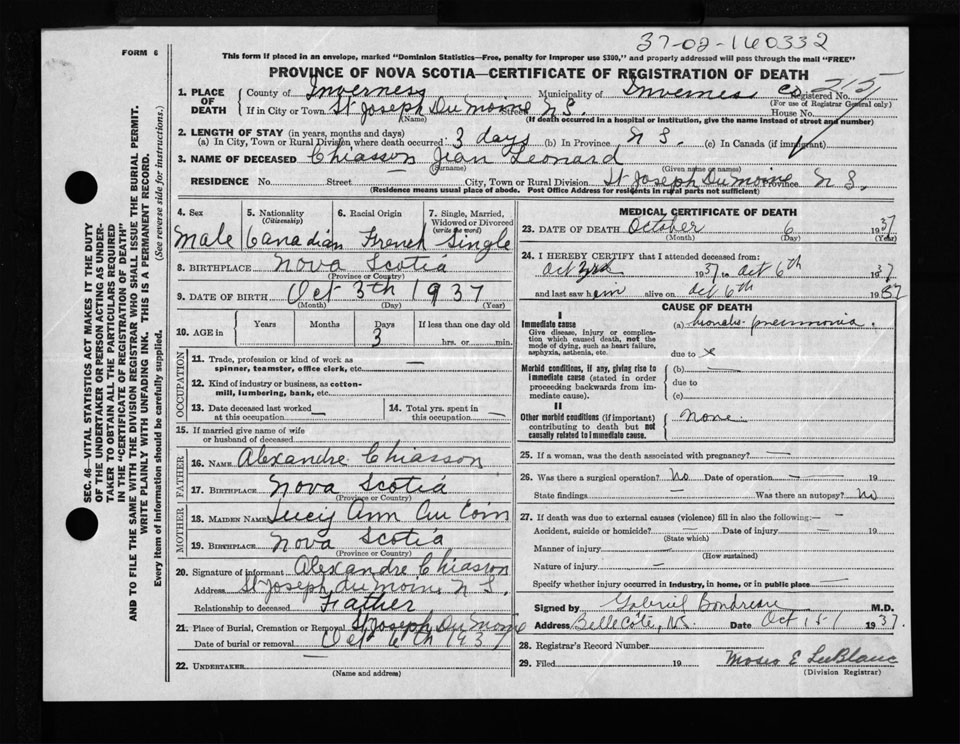 37-02-160332
FORM 6
This form if placed in an envelope, marked "Dominion Statistics—Free, penalty for improper use $300," and properly addressed will pass through the mail "FREE"
PROVINCE OF NOVA SCOTIA—CERTIFICATE OF REGISTRATION OF DEATH
SEC. 46—VITAL STATISTICS ACT MAKES IT THE DUTY
OF THE UNDERTAKER OR PERSON ACTING AS UNDER-
TAKER TO OBTAIN ALL THE PARTICULARS REQUIRED
IN THE "CERTIFICATE OF REGISTRATION OF DEATH"
AND TO FILE THE SAME WITH THE DIVISION REGISTRAR WHO SHALL ISSUE THE BURIAL PERMIT.
WRITE PLAINLY WITH UNFADING INK. THIS IS A PERMANENT RECORD.
Every item of information should be carefully supplied. (See reverse side for instructions.)
1. PLACE OF DEATH
County of Inverness Municipality of Inverness Co Registered No. 215
(For use of Registrar General only)
If in City or Town St Joseph Du Moine Street N S. House No.
(Name) (If death occurred in a hospital or institution, give the name instead of street and number)
2. LENGTH OF STAY (in years, months and days)
(a) In City, Town or Rural Division where death occurred 3 days (b) In Province N S. (c) In Canada (if immigrant)
3. NAME OF DECEASED Chiasson Jean Leonard
(Surname) (Given name or names)
RESIDENCE No. Street City, Town or Rural Division St Joseph Du Moine Province N S.
(Residence means usual place of abode. Post Office Address for residents in rural parts not sufficient)
4. Sex
Male
5. Nationality
(Citizenship)
Canadian
6. Racial Origin
French
7. Single, Married, Widowed or Divorced
(write the word)
Single
8. BIRTHPLACE Nova Scotia
(Province or Country)
9. DATE OF BIRTH Oct 3th 1937
(Month) (Day) (Year)
10. AGE in
Years Months Days If less than one day old
3 hrs. or min.
OCCUPATION
11. Trade, profession or kind of work as
spinner, teamster, office clerk, etc. —
12. Kind of industry or business, as cotton-
mill, lumbering, bank, etc.
13. Date deceased last worked
at this occupation —
14. Total yrs. spent in
this occupation —
15. If married give name of wife
or husband of deceased
FATHER
16. NAME Alexandre Chiasson
17. BIRTHPLACE Nova Scotia
(Province or Country)
MOTHER
18. MAIDEN NAME Lucy Ann Au Coin
19. BIRTHPLACE Nova Scotia
(Province or Country)
20. Signature of informant Alexandre Chiasson
Address St Joseph du Moine N S.
Relationship to deceased Father
21. Place of Burial, Cremation or Removal St Joseph Du Moine
Date of burial or removal Oct 6th 1937
22. UNDERTAKER —
(Name and address)
MEDICAL CERTIFICATE OF DEATH
23. DATE OF DEATH October 6 1937
(Month) (Day) (Year)
24. I HEREBY CERTIFY that I attended deceased from:
Oct 3rd 1937 to Oct 6th 1937
and last saw him alive on Oct 6th 1937
CAUSE OF DEATH
I
Immediate cause
Give disease, injury or complication which caused death, not the mode of dying, such as heart failure, asphyxia, asthenia, etc.
(a) pneumonia.
due to
Morbid conditions, if any, giving rise to immediate cause (stated in order proceeding backwards from immediate cause).
(b) —
due to
(c)
II
Other morbid conditions (if important) contributing to death but not causally related to immediate cause.
None.
25. If a woman, was the death associated with pregnancy? —
26. Was there a surgical operation? No Date of operation — 19
State findings — Was there an autopsy? No
27. If death was due to external causes (violence) fill in also the following:— —
Accident, suicide or homicide? Date of injury — 19
(State which)
Manner of injury —
(How sustained)
Nature of injury —
Specify whether injury occurred in industry, in home, or in public place —
Signed by Gabriel Boudreau M.D.
Address Belle Cote, NS. Date Oct 15 1937.
28. Registrar's Record Number
29. Filed 19 Moses E LeBlanc
(Division Registrar)